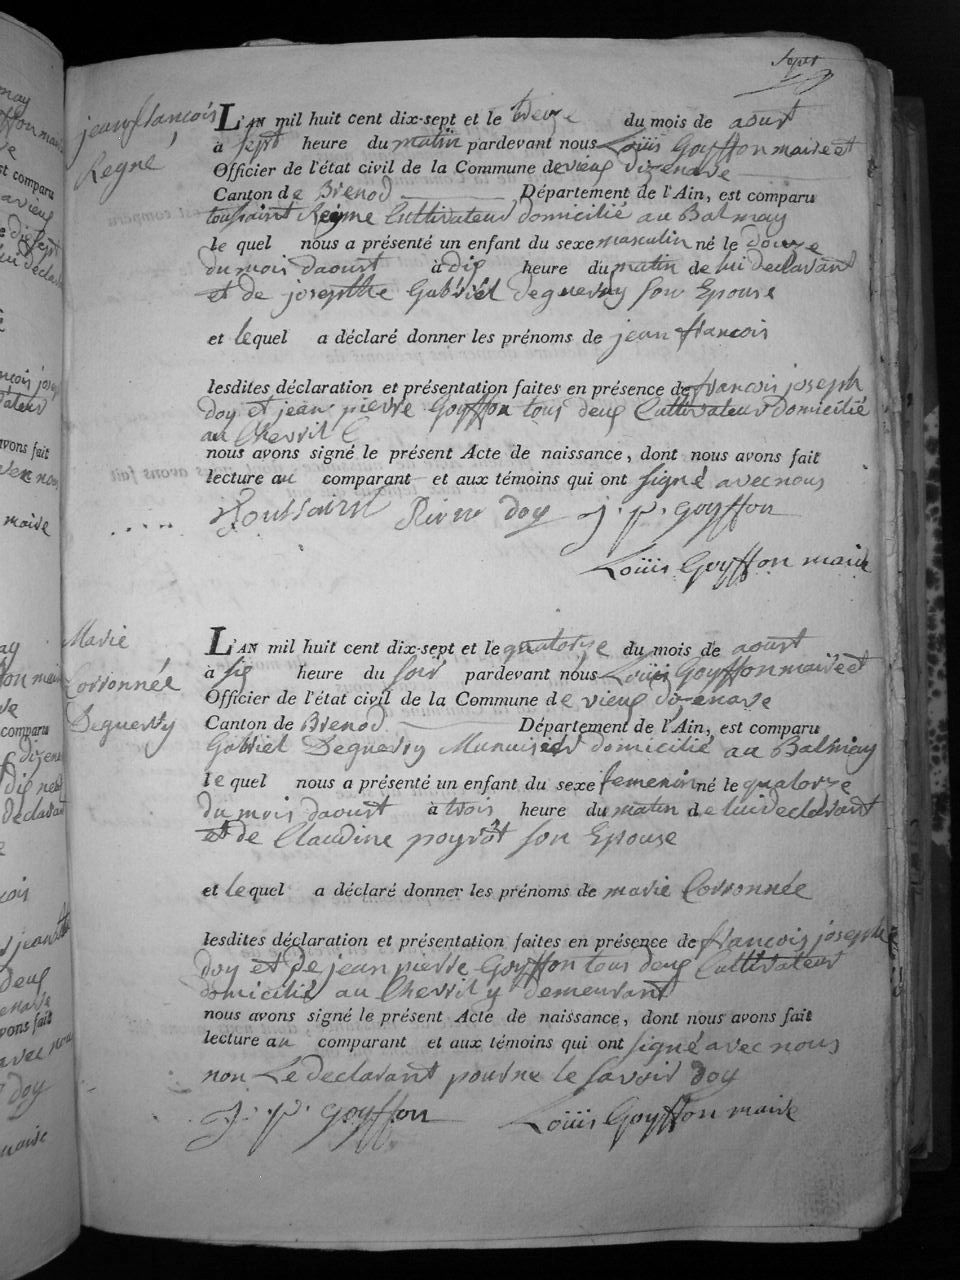 Sept
jean françois
Regne
L'AN mil huit cent dix-sept et le treize du mois de aoust
à sept heure du matin pardevant nous Louïs Goyffon maire et
Officier de l'état civil de la Commune de vieux dizenave
Canton de Brenod Département de l'Ain, est comparu
toussaint Reyne Cultivateur domicilié au Balmay
le quel nous a présenté un enfant du sexe masculin né le douze
du mois daoust à dix heure du matin de lui declarant
et de josepthe Gabriel deguerry son Epouse
et lequel a déclaré donner les prénoms de jean francois
lesdites déclaration et présentation faites en présence de francois joseph
doy et jean pierre Goyffon tous deux Cultivateur domicilié
au Chevril
nous avons signé le présent Acte de naissance, dont nous avons fait
lecture au comparant et aux témoins qui ont signé avec nous
Toussaint doy j. p. goyffon
Louïs Goyffon maire
Marie
Corronnée
Deguerry
L'AN mil huit cent dix-sept et le quatorze du mois de aoust
à six heure du soir pardevant nous Louïs Goyffon maire et
Officier de l'état civil de la Commune de vieux dizenave
Canton de Brenod Département de l'Ain, est comparu
Gabriel Deguerry Munuisier domicilié au Balmay
le quel nous a présenté un enfant du sexe femenin né le quatorze
du mois daoust à trois heure du matin de lui declarant
et de Claudine poyrot son Epouse
et lequel a déclaré donner les prénoms de marie Corronnée
lesdites déclaration et présentation faites en présence de francois joseph
doy et de jean pierre Goyffon tous deux Cultivateur
domicilié au Chevril y demeurant
nous avons signé le présent Acte de naissance, dont nous avons fait
lecture au comparant et aux témoins qui ont signé avec nous
non Le declarant pour ne le savoir doy
J. p. goyffon Louïs Goyffon maire